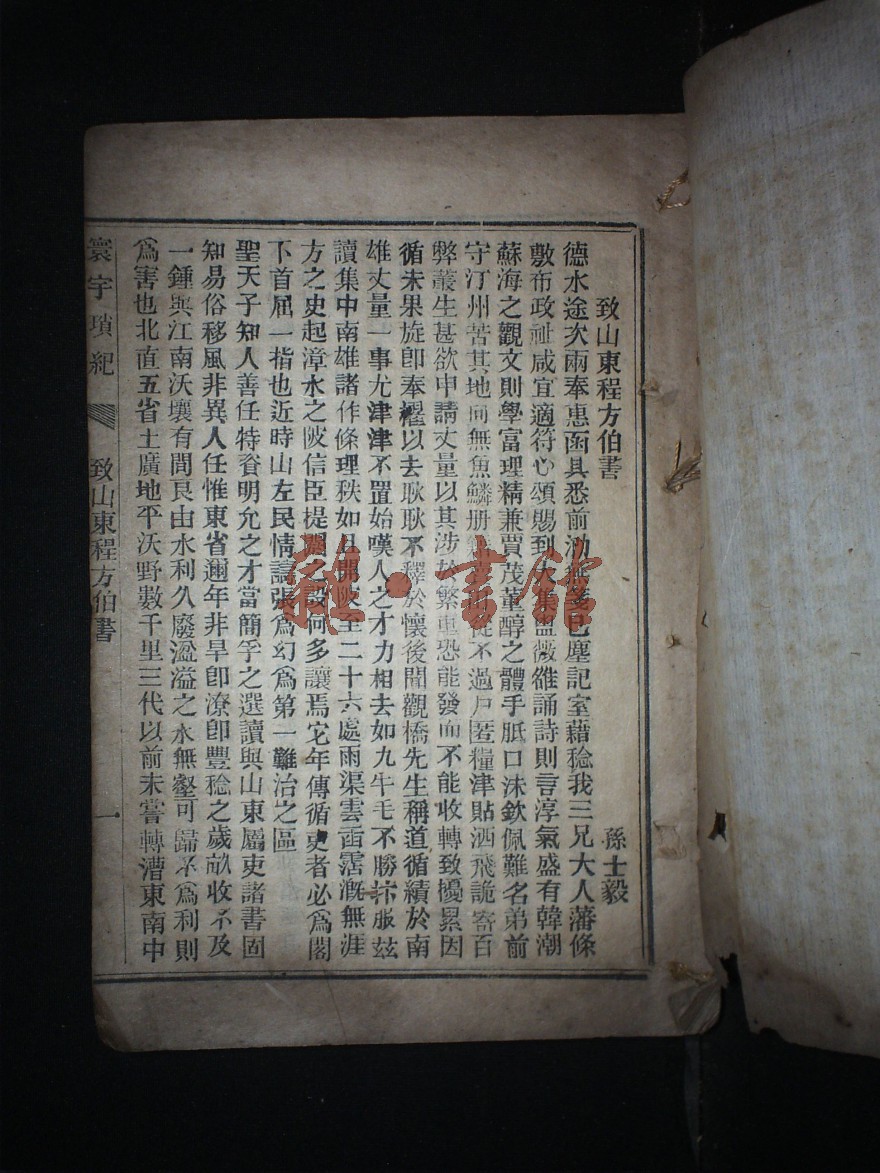 致山東程方伯書
孫士毅
德水途次兩奉惠函具悉前泐無箋已塵記室藉稔我三兄大人藩條
敷布政祉咸宜適符心頌賜到大集盥薇雒誦詩則言淳氣盛有韓潮
蘇海之觀文則學富理精兼賈茂董醇之體手胝口沫欽佩難名弟前
守汀州苦其地向無魚鱗册不過戶匿糧津貼洒飛詭寄百
弊叢生甚欲申請丈量以其涉於繁重恐能發而不能收轉致擾累因
循未果旋卽奉擢以去耿耿不釋於懷後聞觀橋先生稱道循績於南
雄丈量一事尤津津不置始嘆人之才力相去如九牛毛不勝抃服玆
讀集中南雄諸作條理秩如且開陂至二十六處雨渠雲臿霑漑無涯
方之史起漳水之陂信臣提閼之設何多讓焉它年傳循吏者必爲閣
下首屈一指也近時山左民情譸張爲幻爲第一難治之區
聖天子知人善任特資明允之才當簡孚之選讀與山東屬吏諸書固
知易俗移風非異人任惟東省邇年非旱卽潦卽豐稔之歲畝收不及
一鍾與江南沃壤有間良由水利久廢溫溢之水無壑可歸不爲利則
爲害也北直五省土廣地平沃野數千里三代以前未嘗轉漕東南中
寰宇瑣紀
致山東程方伯書
一
雜·書館